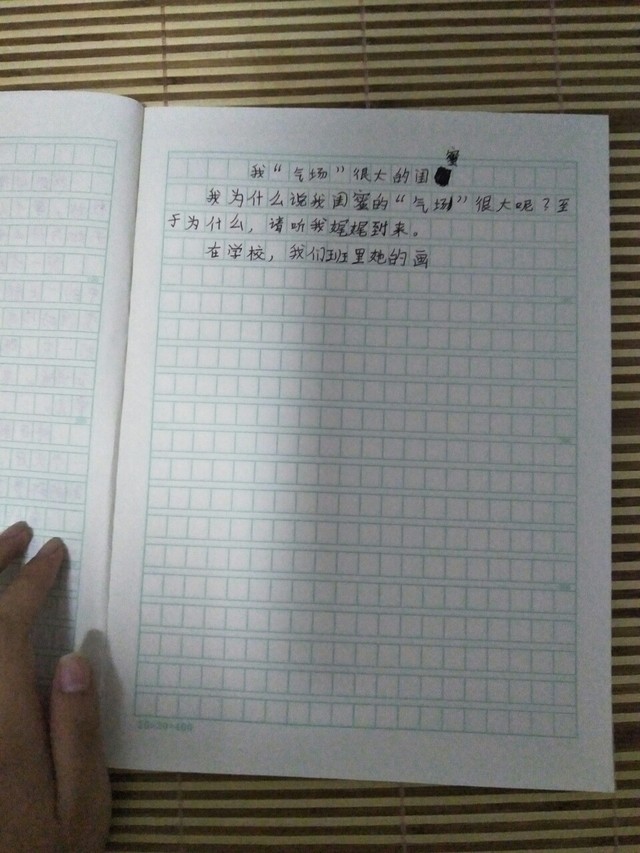 我“气场”很大的闺蜜
我为什么说我闺蜜的“气场”很大呢？至
于为什么，请听我娓娓到来。
在学校，我们班里她的画
20×20=400